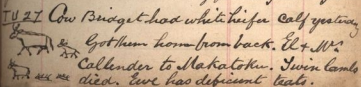 TU 27 Cow Bridget had white heifer calf yesterday
Got them hom from back. El & Mrs
Callender to Makatoku. Twin lambs
died. Ewe has deficient teats.